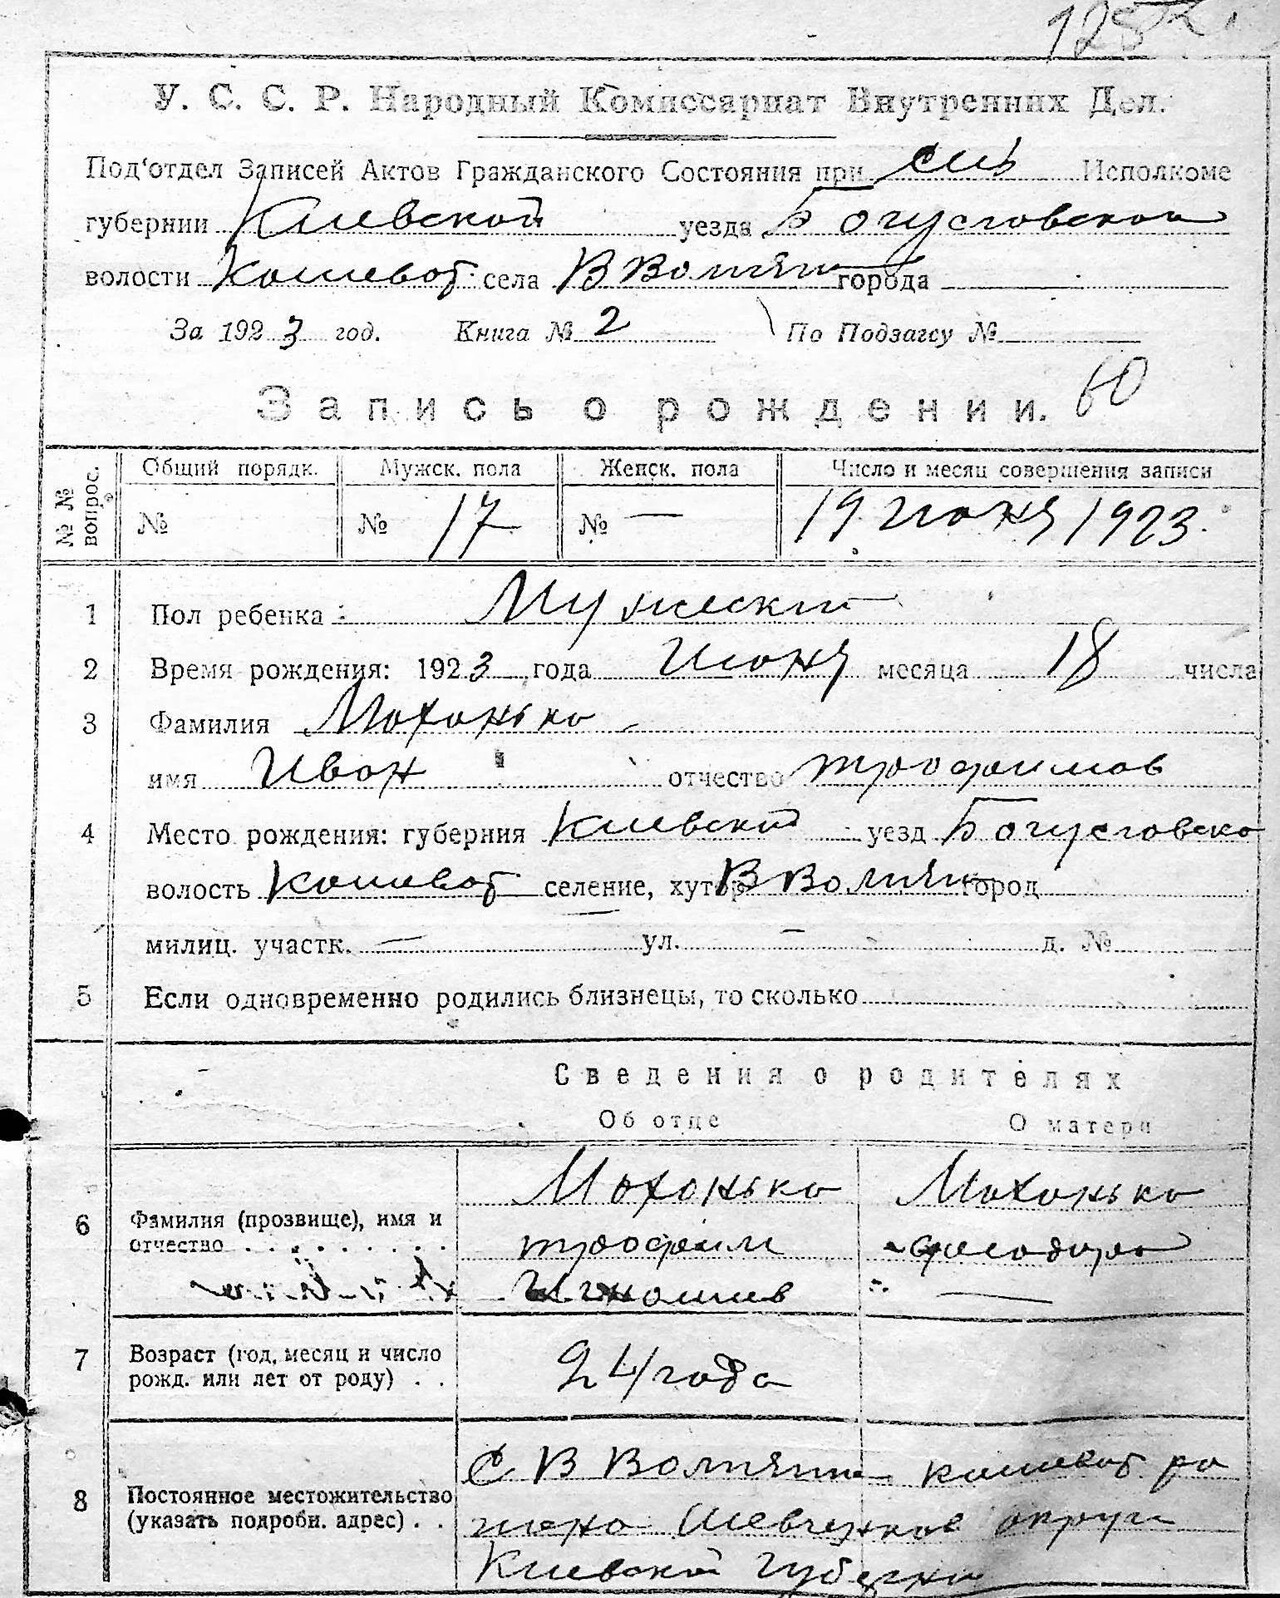 128
У. С. С. Р. Народный Комиссариат Внутренних Дел.
Под‘отдел Записей Актов Гражданского Состояния при Исполкоме
губернии Киевской уезда Богуславском
волости Кошеват села В Вотилки города
За 1923 год. Книга № 2 По Подзагсу №
Запись о рождении. 60
№ № вопрос. Общий порядк. Мужск. пола Женск. пола Число и месяц совершения записи
№ № 17 № — 19 июня 1923.
1 Пол ребенка: Мужеский
2 Время рождения: 1923 года Июня месяца 18 числа
3 Фамилия Мохонько
имя Ивон отчество трофимов
4 Место рождения: губерния Киевской уезд Богуславско
волость Кошеват селение, хутор В город
милиц. участк. — ул. — д. №
5 Если одновременно родились близнецы, то сколько
Сведения о родителях
Об отце О матери
6 Фамилия (прозвище), имя и отчество Мохонько Мохонько
трофим феодора
—
7 Возраст (год, месяц и число рожд. или лет от роду) 24 года
8 Постоянное местожительство (указать подробн. адрес) С В кошеват ра
иона Шевченков округи
Киевской Губернии